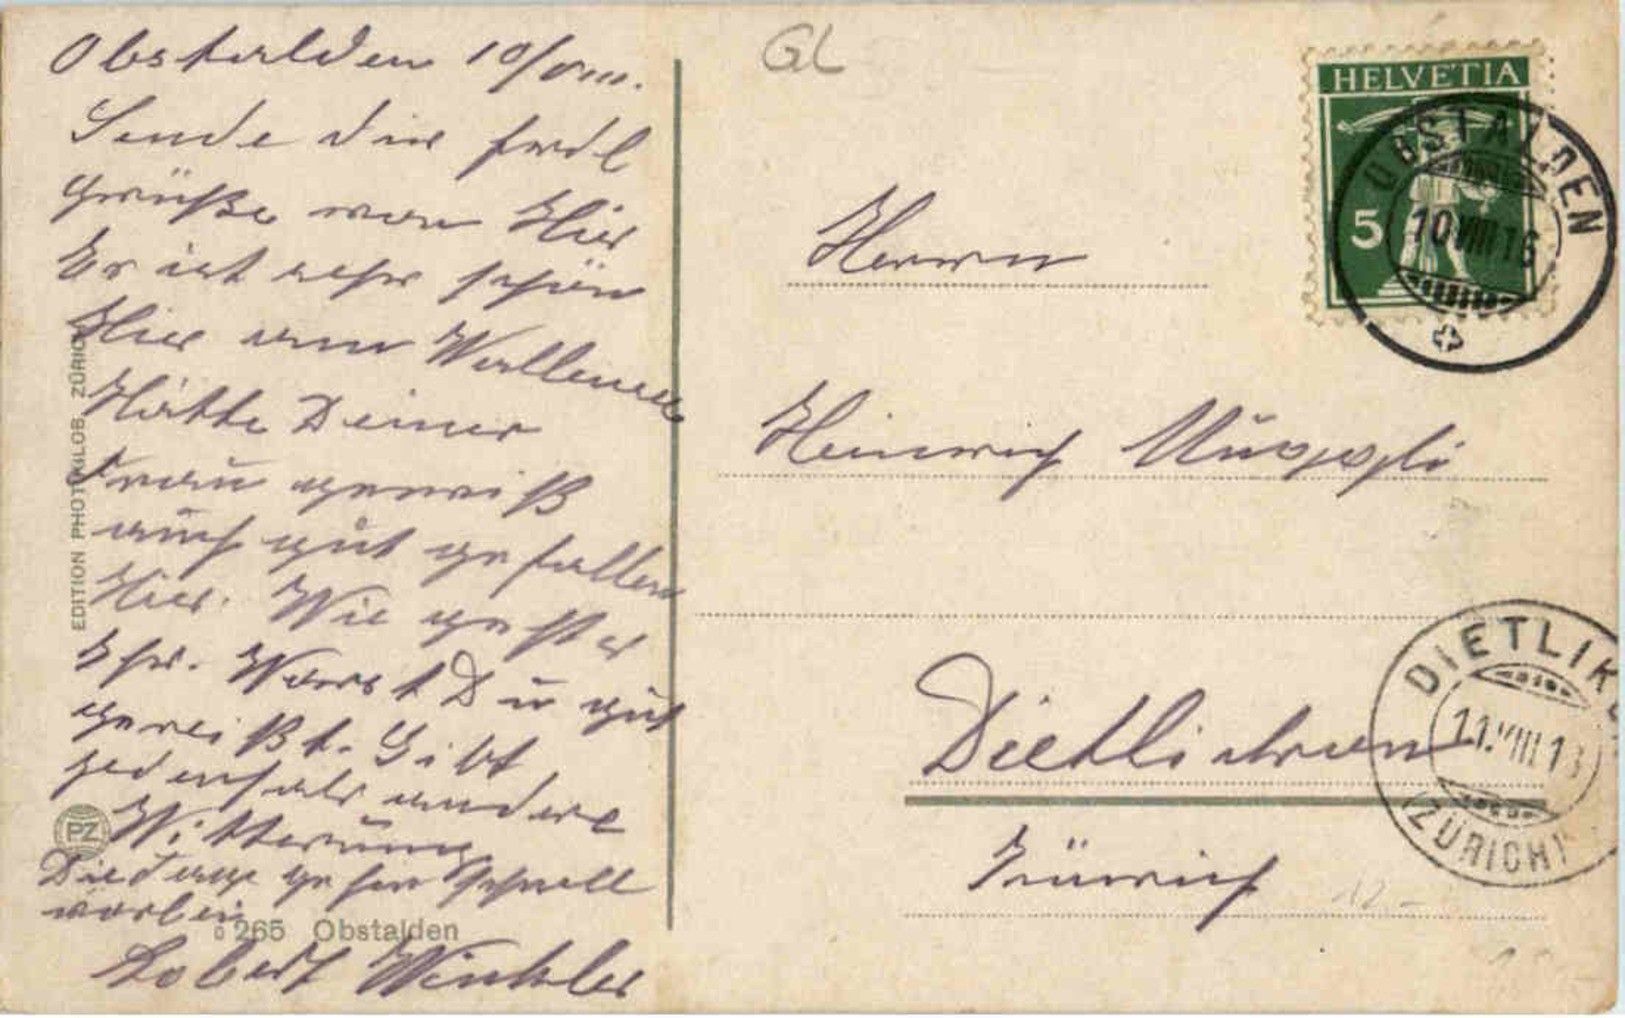 Obstalden 10/VIII.
Sende dir frdl
Grüße von Hier
Es ist sehr schön
Hier am Wallensee
Hätte Deiner
Frau gewiß
auch gut gefallen
Hier. Wie geht es
Ihr. Warst Du gut
gereißt. Gibt
jedenfals andere
Witterung
Die Tage gehen schnell
vorbei
Robert Winkler
EDITION PHOTOGLOB, ZÜRICH
PZ
265 Obstalden
GL
HELVETIA
5
OBSTALDEN
10 VIII 16
Herrn
Heinrich Nüeppli
Dietlickon
Zürich
DIETLIKON
11.VIII 1
(ZÜRICH)